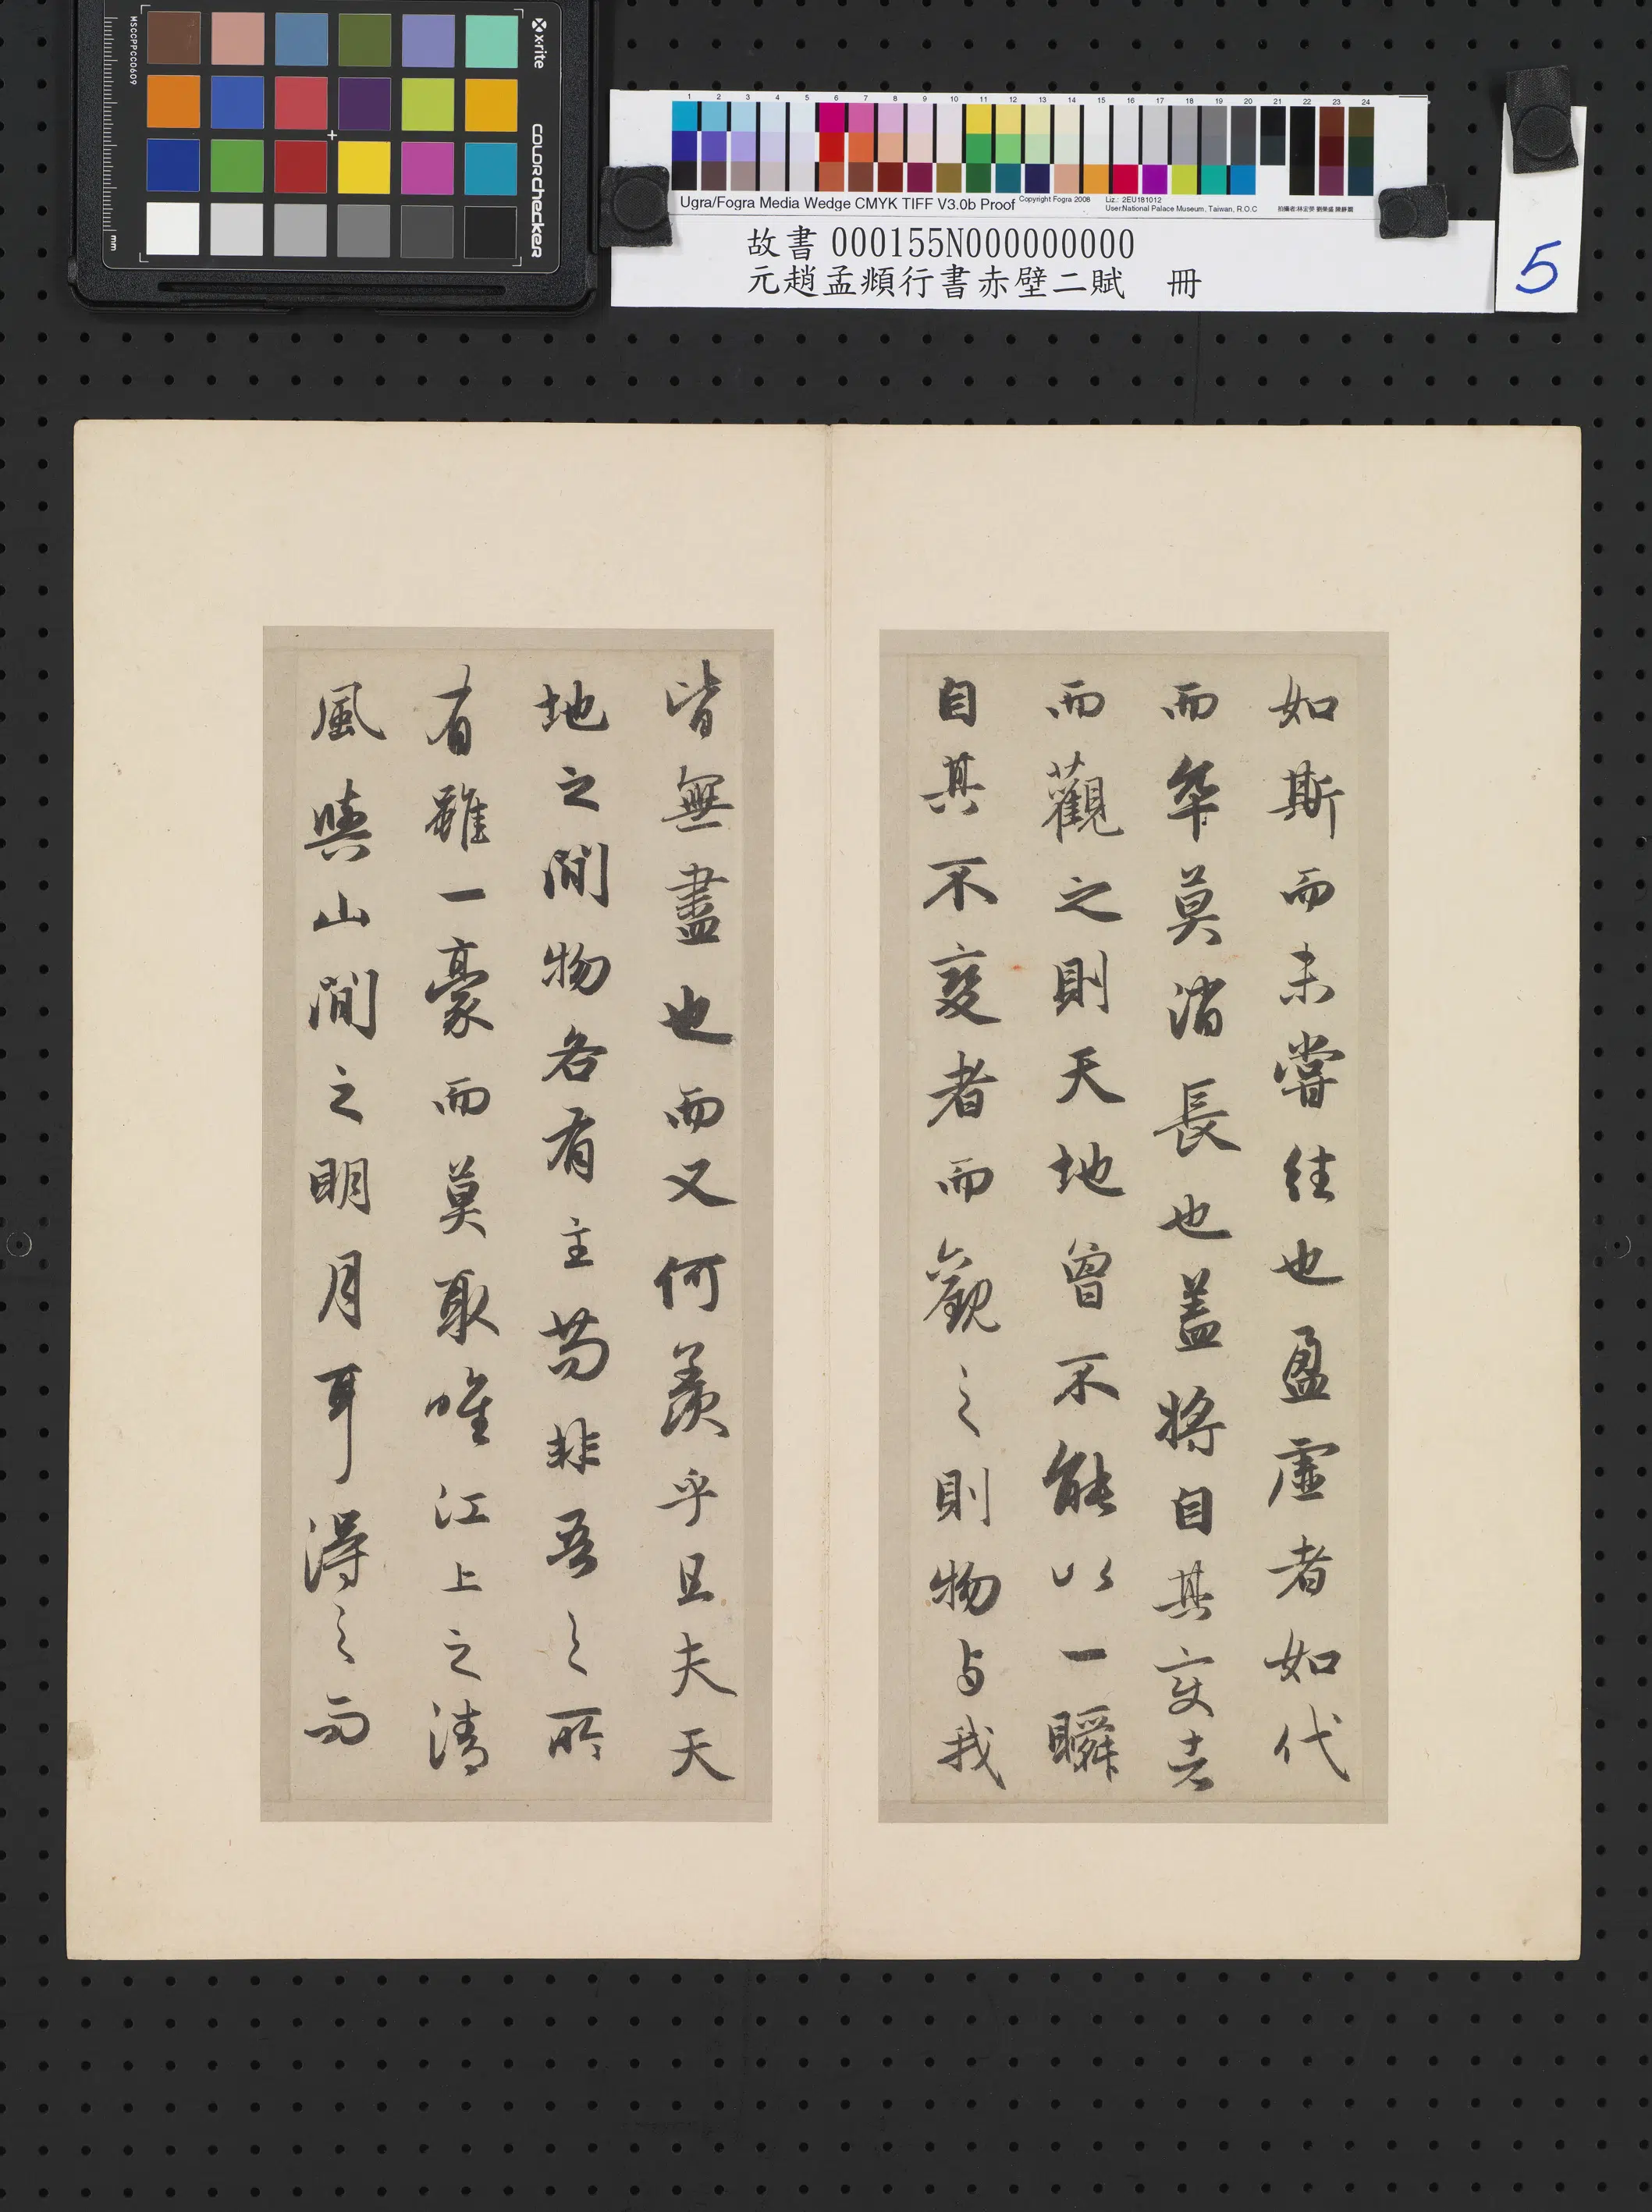 x·rite
MSCCPPCC0609
colorchecker
mm
1 2 3 4 5 6 7 8 9 10 11 12 13 14 15 16 17 18 19 20 21 22 23 24
Ugra/Fogra Media Wedge CMYK TIFF V3.0b Proof
Copyright Fogra 2008
Liz.: 2EU181012
User:National Palace Museum, Taiwan, R.O.C
故書 000155N000000000
元趙孟頫行書赤壁二賦 冊
5
如斯而未嘗往也盈虛者如代
而卒莫消長也盖將自其變者
而觀之則天地曾不能以一瞬
自其不變者而觀之則物与我
皆無盡也而又何羨乎且夫天
地之間物各有主苟非吾之所
有雖一豪而莫取唯江上之清
風與山間之明月耳得之而